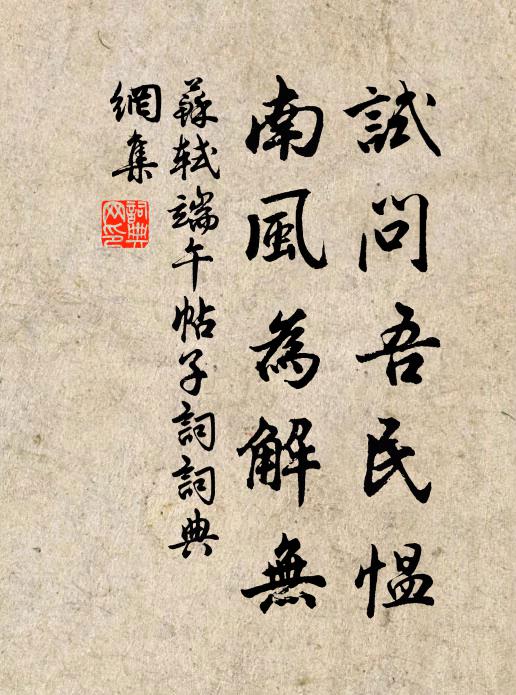 試問吾民愠
南風為解無
蘇軾端午帖子詞詞典
網集
詞典
网印